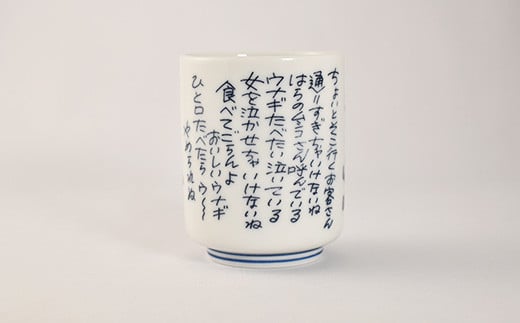 ちょいとそこ行くお客さん
通りすぎちゃいけないね
はちの公さん呼んでいる
ウナギたべたい泣いている
女を泣かせちゃいけないね
食べてごらんよ
おいしいウナギ
ひと口たべたらウ〜〜
やめられぬ